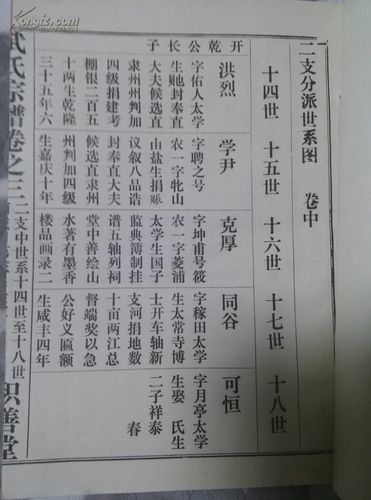 二支分派世系图 卷中
十四世 十五世 十六世 十七世 十八世
开乾公长子
洪烈
字佑人太学
生驰封奉直
大夫候选直
隶州州判加
四级捐建考
棚银二百五
十两生乾隆
三十五年六
学尹
字聘之号
农一字牝山
山盐生捐赈
议叙八品诰
封奉直大夫
候选直隶州
州判加四级
生嘉庆十年
克厚
字坤甫号筱
农一字菱浦
太学生国子
监典簿制挂
谱五轴列祠
堂中善绘山
水著有墨香
楼品画录二
同谷
字稼田太学
生太常寺博
士开车轴新
支河捐地数
十亩两江总
督端奖以急
公好义匾额
生咸丰四年
可恒
字月亭太学
生娶 氏生
二子祥泰
春
武氏宗谱卷之三
二支中世系十四世至十八世
积善堂